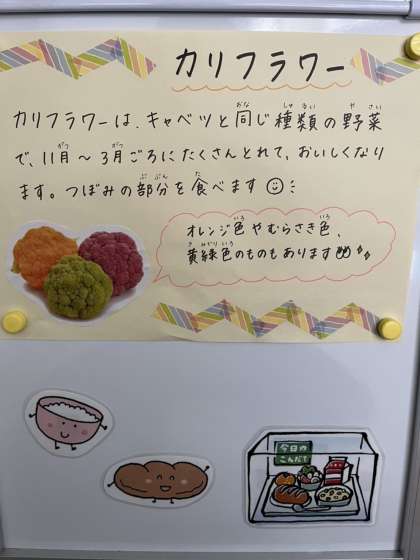 カリフラワー
カリフラワーは、キャベツと同じ種類の野菜
で、11月〜3月ごろにたくさんとれて、おいしくなり
ます。つぼみの部分を食べます
オレンジ色やむらさき色、
黄緑色のものもあります
今日の
こんだて